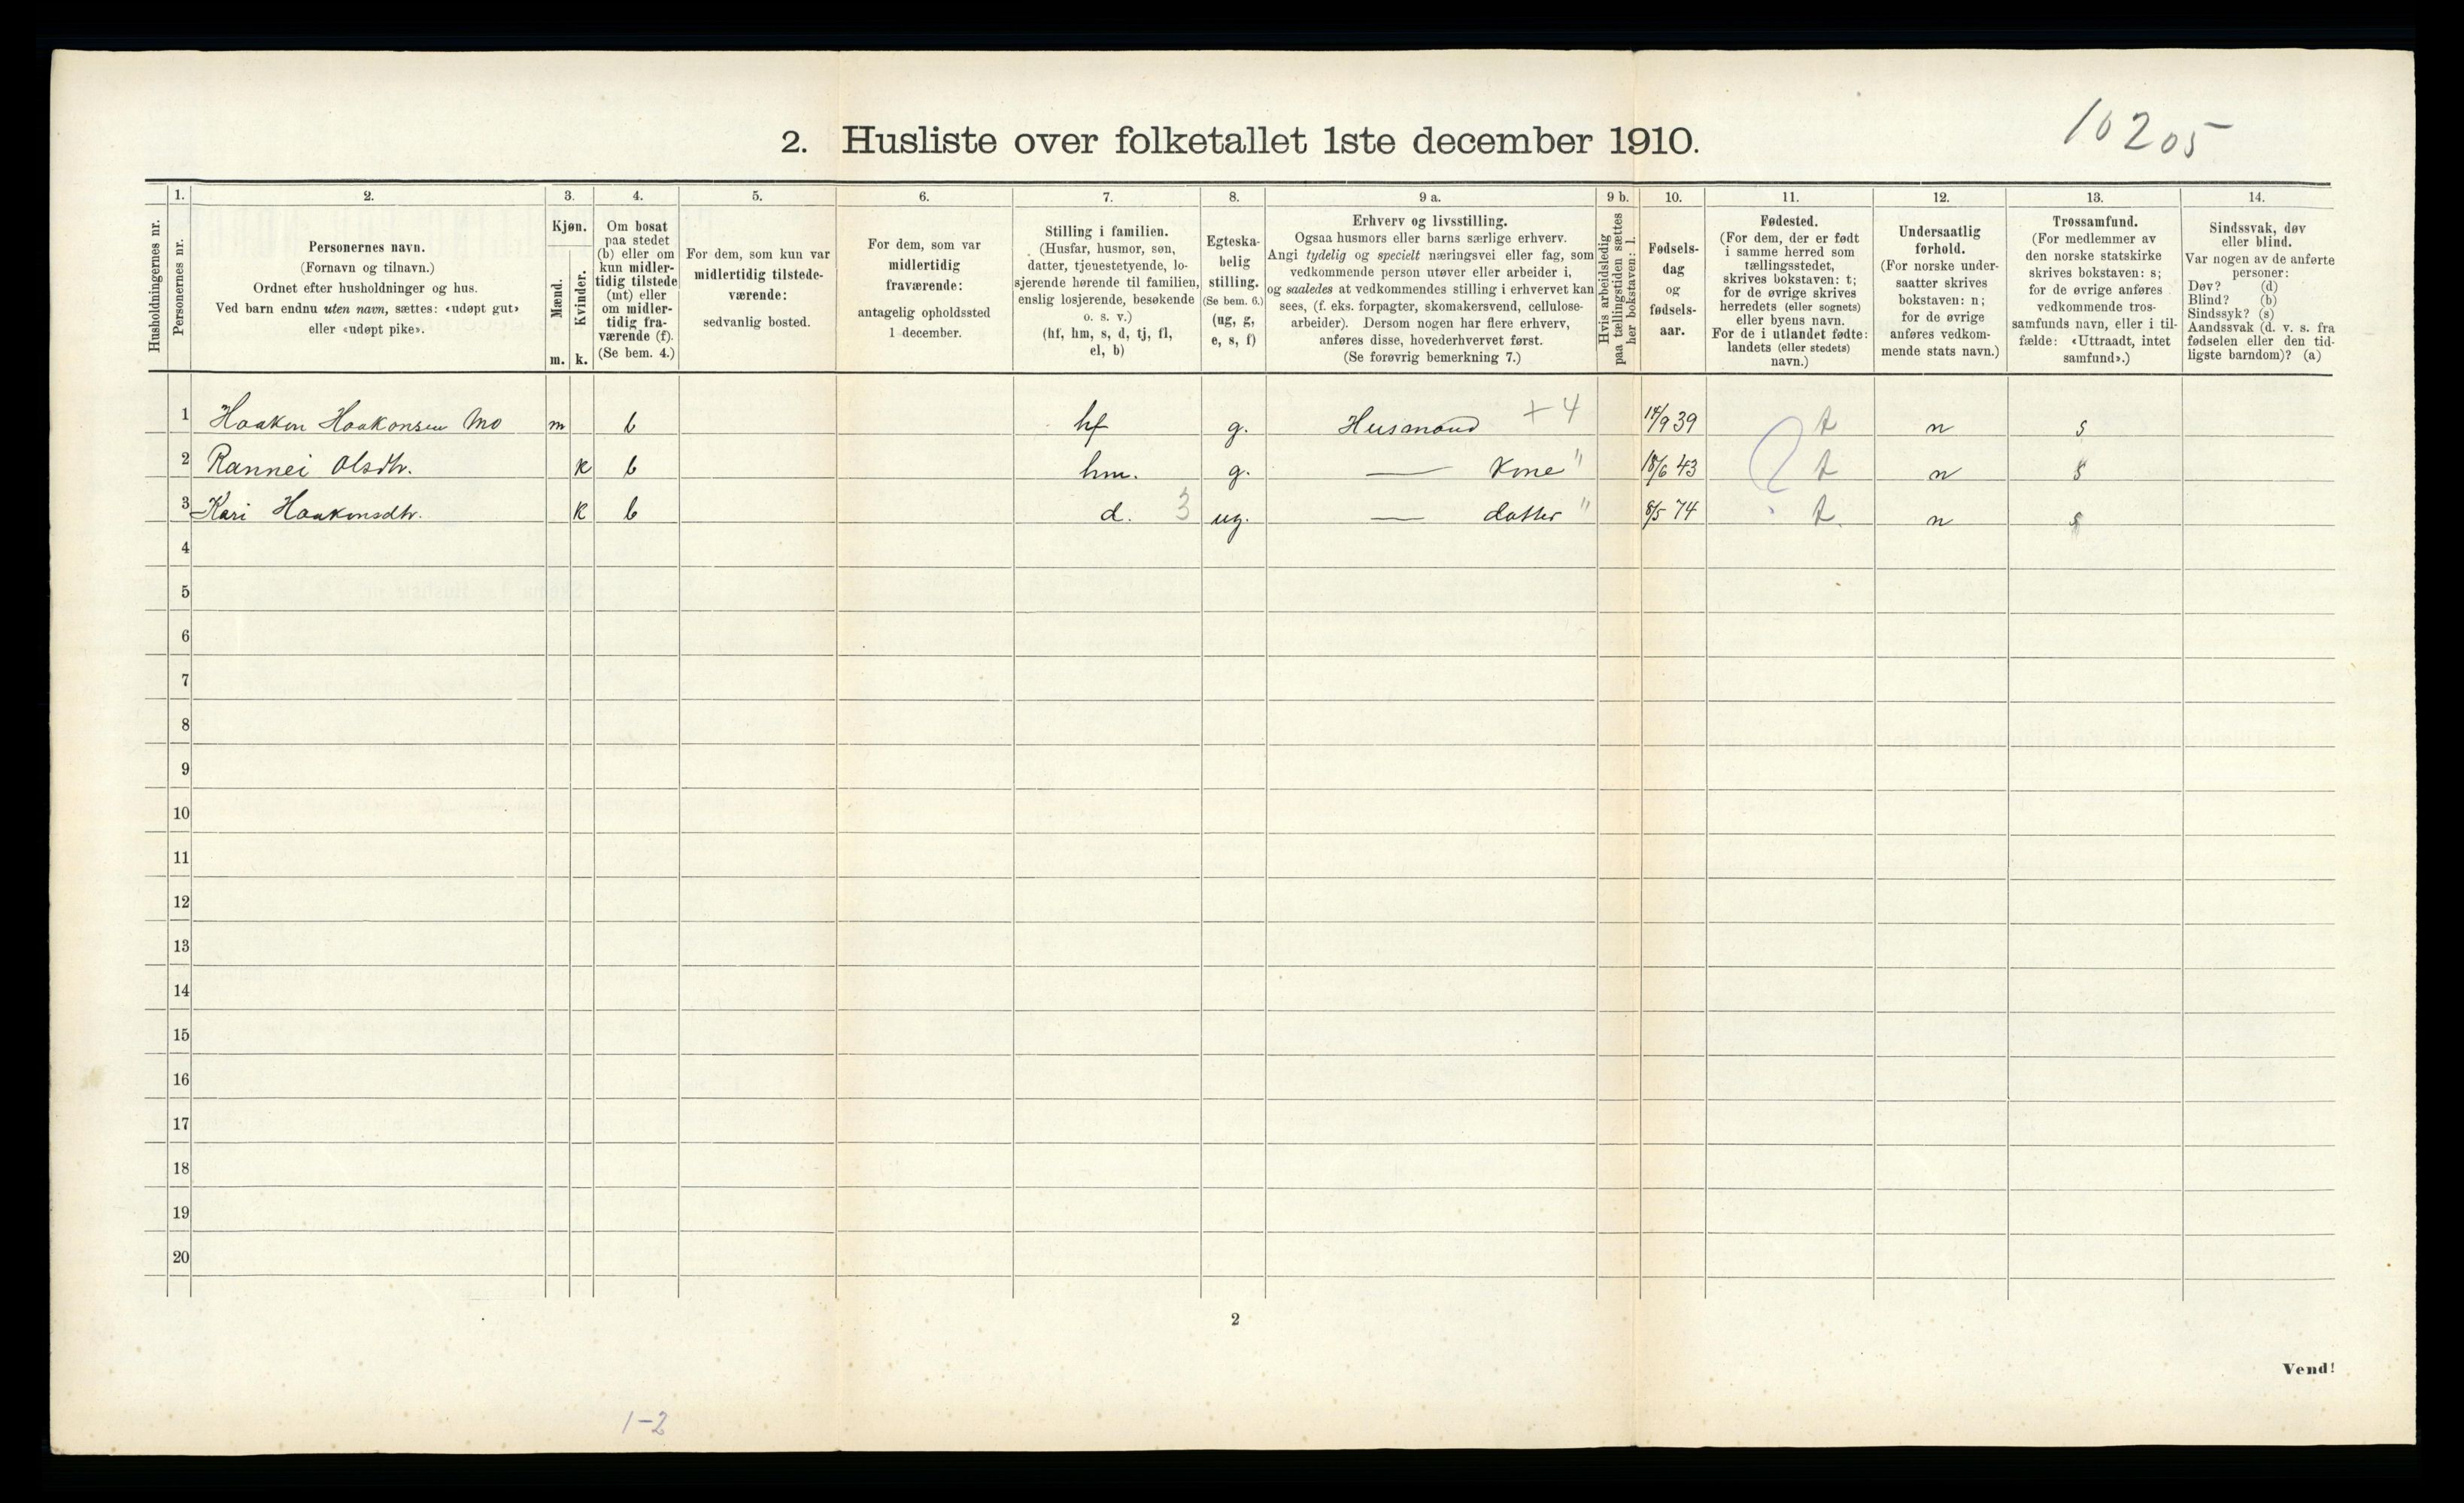 10205
2. Husliste over folketallet 1ste december 1910.
Husholdningernes nr.
1.
Personernes nr.
2.
Personernes navn.
(Fornavn og tilnavn.)
Ordnet efter husholdninger og hus.
Ved barn endnu uten navn, sættes: «udøpt gut»
eller «udøpt pike».
3.
Kjøn.
Mænd.
m.
Kvinder.
k.
4.
Om bosat
paa stedet
(b) eller om
kun midler-
tidig tilstede
(mt) eller
om midler-
tidig fra-
værende (f).
(Se bem. 4.)
5.
For dem, som kun var
midlertidig tilstede-
værende:
sedvanlig bosted.
6.
For dem, som var
midlertidig
fraværende:
antagelig opholdssted
1 december.
7.
Stilling i familien.
(Husfar, husmor, søn,
datter, tjenestetyende, lo-
sjerende hørende til familien,
enslig losjerende, besøkende
o. s. v.)
(hf, hm, s, d, tj, fl,
el, b)
8.
Egteska-
belig
stilling.
(Se bem. 6.)
(ug, g,
e, s, f)
9 a.
Erhverv og livsstilling.
Ogsaa husmors eller barns særlige erhverv.
Angi tydelig og specielt næringsvei eller fag, som
vedkommende person utøver eller arbeider i,
og saaledes at vedkommendes stilling i erhvervet kan
sees, (f. eks. forpagter, skomakersvend, cellulose-
arbeider). Dersom nogen har flere erhverv,
anføres disse, hovederhvervet først.
(Se forøvrig bemerkning 7.)
9 b.
Hvis arbeidsledig
paa tællingstiden sættes
her bokstaven: l.
10.
Fødsels-
dag
og
fødsels-
aar.
11.
Fødested.
(For dem, der er født
i samme herred som
tællingsstedet,
skrives bokstaven: t;
for de øvrige skrives
herredets (eller sognets)
eller byens navn.
For de i utlandet fødte:
landets (eller stedets)
navn.)
12.
Undersaatlig
forhold.
(For norske under-
saatter skrives
bokstaven: n;
for de øvrige
anføres vedkom-
mende stats navn.)
13.
Trossamfund.
(For medlemmer av
den norske statskirke
skrives bokstaven: s;
for de øvrige anføres
vedkommende tros-
samfunds navn, eller i til-
fælde: «Uttraadt, intet
samfund».)
14.
Sindssvak, døv
eller blind.
Var nogen av de anførte
personer:
Døv? (d)
Blind? (b)
Sindssyk? (s)
Aandssvak (d. v. s. fra
fødselen eller den tid-
ligste barndom)? (a)
1 Haakon Haakonsen Mo m b hf g. Husmand + 4 14/9 39 t n s
2 Rannei Olsdtr. k b hm. g. — Kone " 18/6 43 t n s
3 Kari Haakonsdtr. k b d. 3 ug. — datter " 8/5 74 t. n s
4
5
6
7
8
9
10
11
12
13
14
15
16
17
18
19
20
2
Vend!
1-2